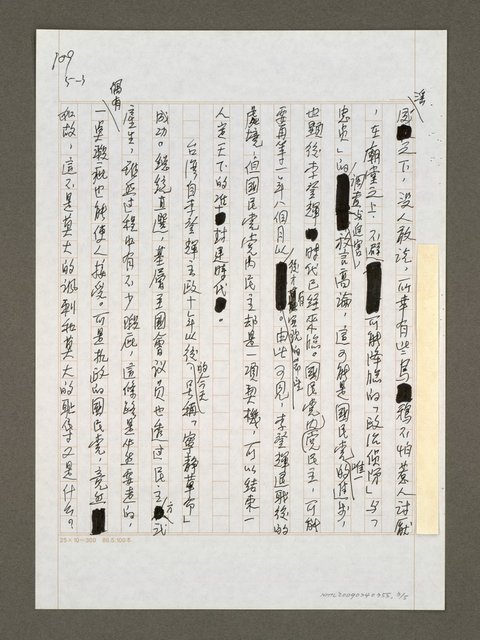 109
5-3
國之下,沒人敢說,所幸有些烏鴉不怕惹人討厭
,在廟堂之上,不避可能降臨的「政治偵防」與「
調查與迫害
忠貞」的放言高論,這可能是國民黨唯一的進步,
也顯後李登輝時代已經來臨。國民黨的黨內民主,可能
要再等一年八個月以後才有
。由此可見,李登輝退職後的
處境,但國民黨黨內民主却是一項契機,可以結束一
人是天下的准封建時代。
台灣自李登輝主政十年以後的今天,號稱「寧靜革命」
成功。總統直選,基層至國會議員也透過民主方式
產生,雖然過程中有不少瑕疵,這條路是
偶有
一點瑕疵也能使人接受。可是執政的國民黨,竟然
如故,這不是莫大的諷刺和莫大的恥辱又是什麼。
25×10=300